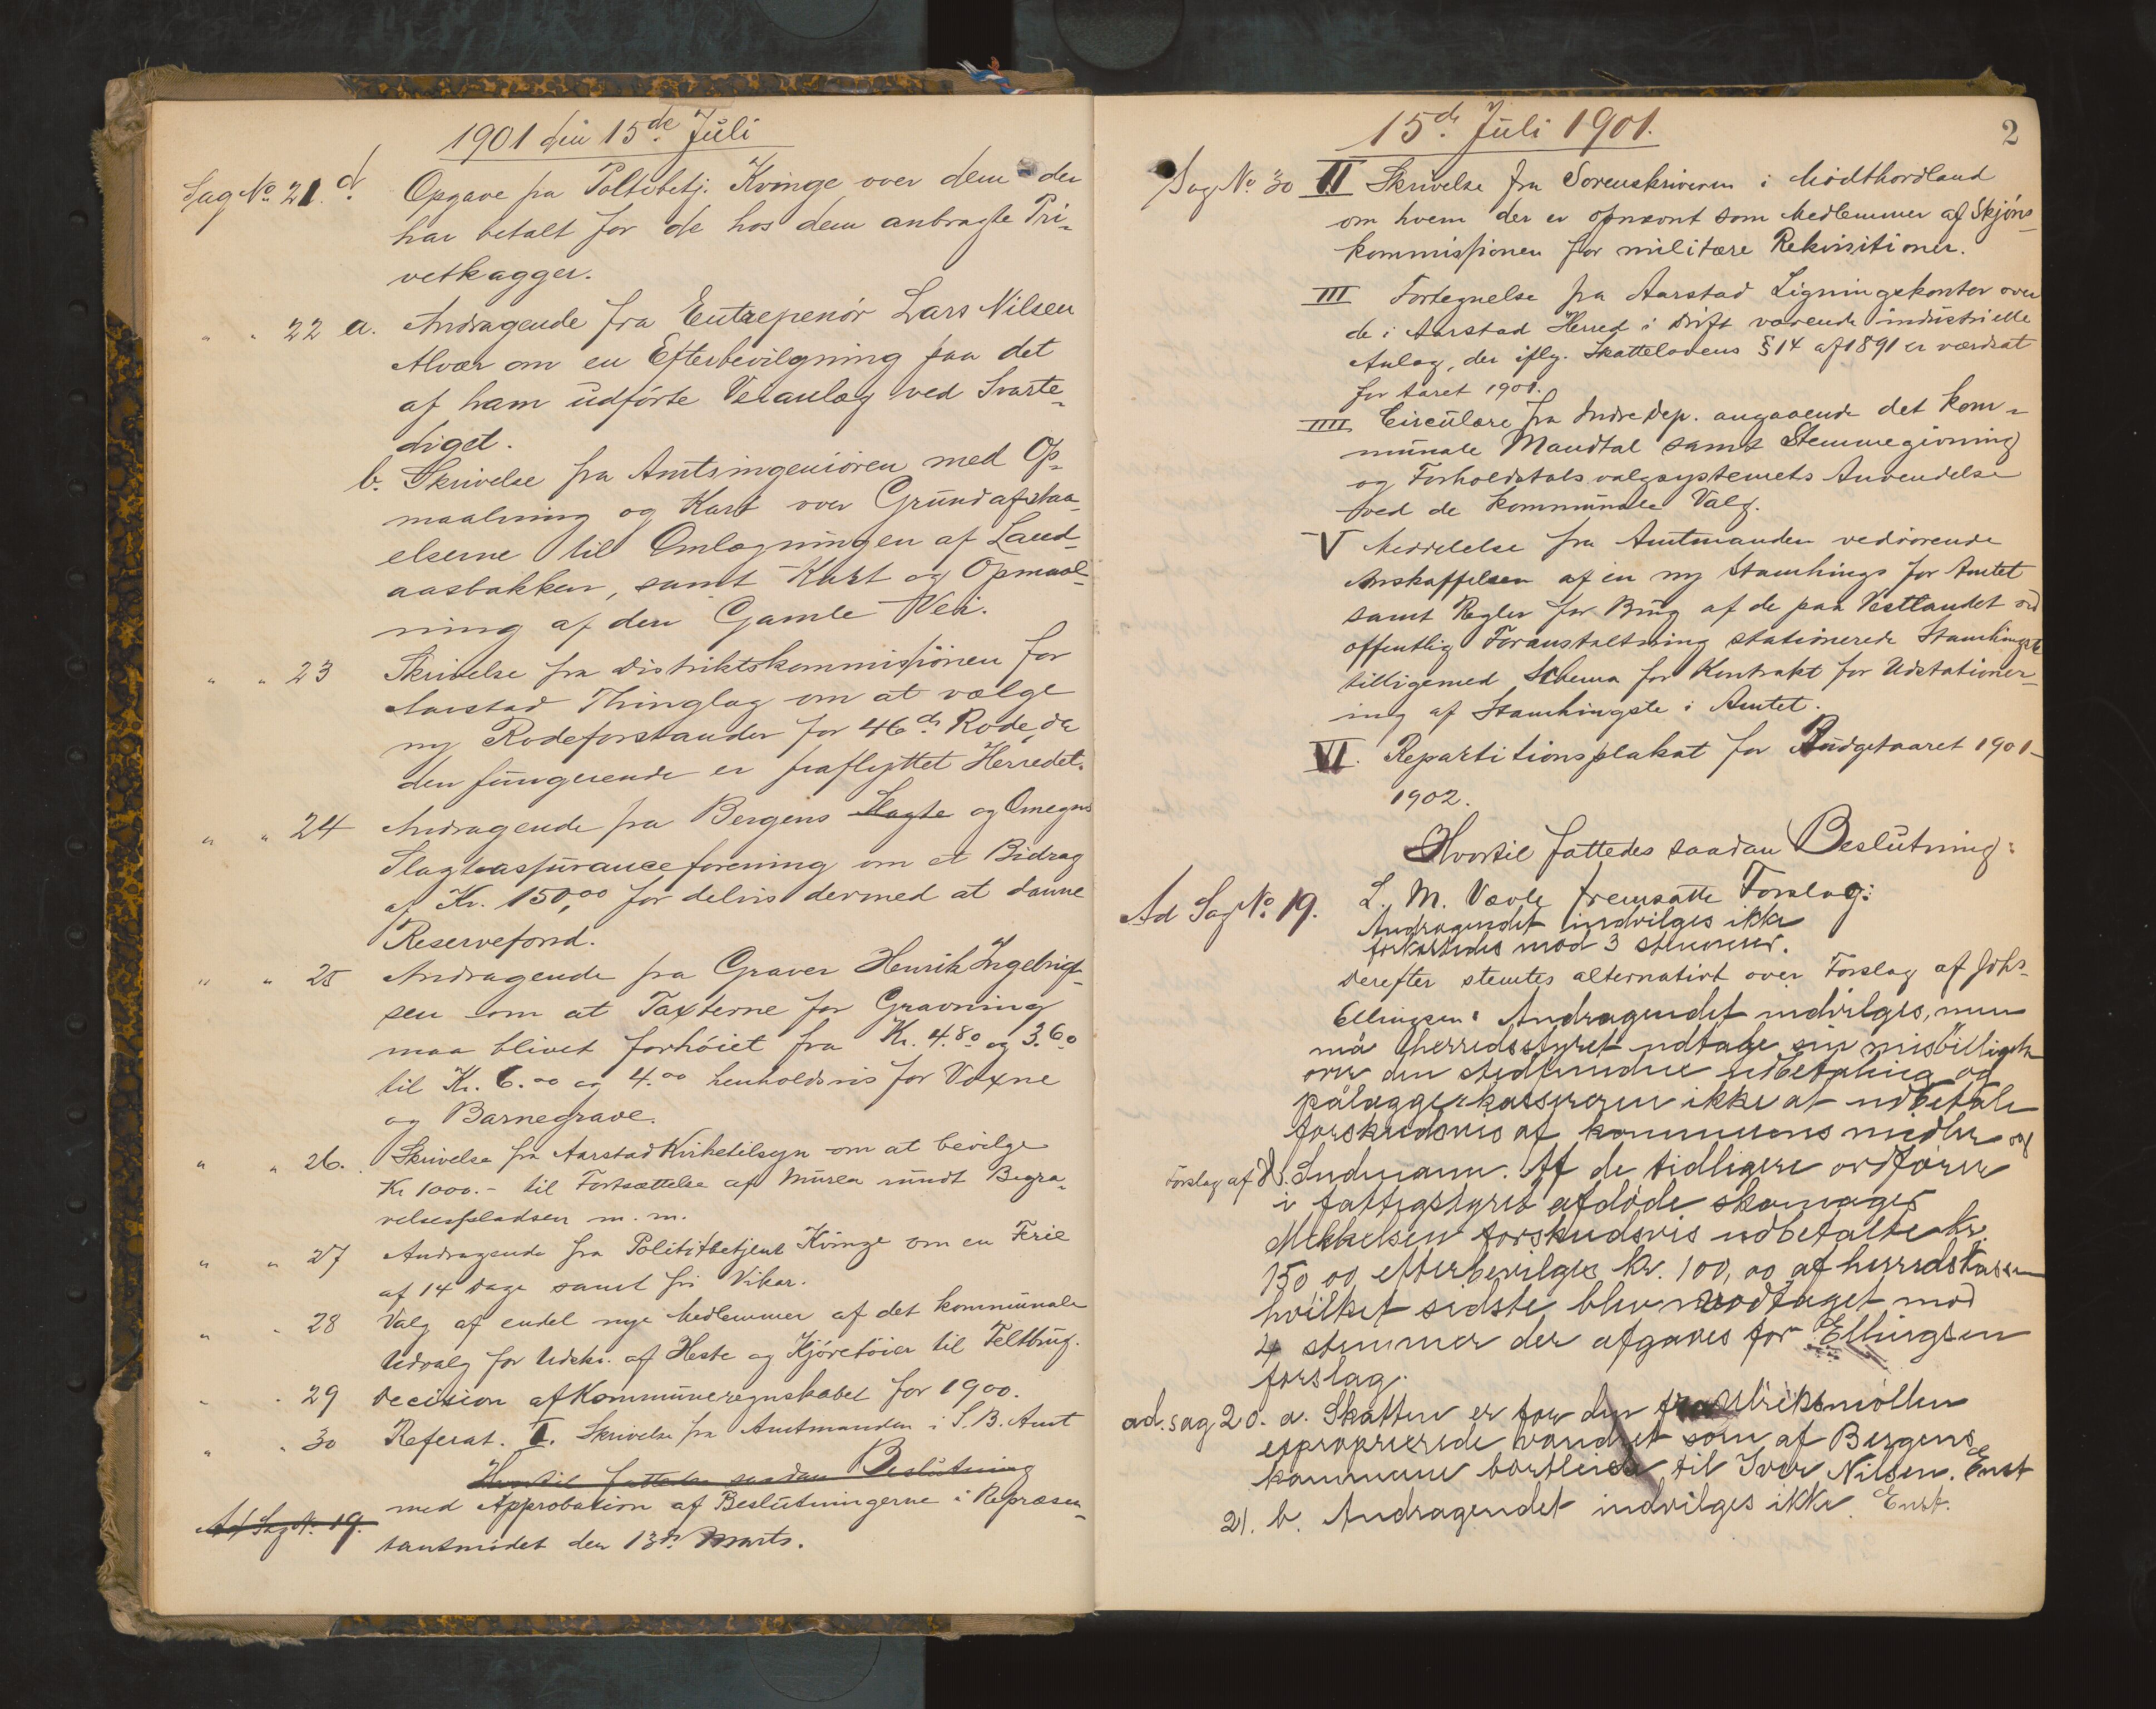 1901 den 15de Juli
Sag No 21. d. Opgave fra Politibetj. Kvinge over dem der
har betalt for de hos dem anbragte Pri-
vetkagger.
" " 22 a. Andragende fra Entrepenør Lars Nilsen
Alvær om en Efterbevilgning paa det
af ham udførte Veianlæg ved Svarte-
diget.
b. Skrivelse fra Amtsingeniøren med Op-
maalning og Kart over Grundafstaa-
elserne til Omlægningen af Land-
aasbakken, samt Kart og Opmaal-
ning af den Gamle Vei.
" " 23 Skrivelse fra Distriktskommissionen for
Aarstad Thinglag om at vælge
ny Rodeforstander for 46de Rode, da
den fungerende er fraflyttet Herredet.
" " 24 Andragende fra Bergens Slagte og Omegns
Slagteassuranceforening om et Bidrag
af Kr. 150,00 for delvis dermed at danne
Reservefond.
" " 25 Andragende fra Graver Henrik Ingebrigt-
sen om at Taxterne for Gravning
maa blivet forhøiet fra Kr. 4.80 og 3.60
til Kr. 6.00 og 4.00 henholdsvis for Voxne
og Barnegrave.
" " 26. Skrivelse fra Aarstad Kirketilsyn om at bevilge
Kr 1000.- til Fortsættelse af Muren rundt Begra-
velsespladsen m. m.
" " 27 Andragende fra Politibetjent Kvinge om en Ferie
af 14 Dage samt fri Vikar.
" " 28 Valg af endel nye Medlemmer af det kommunale
Udvalg for Udskr. af Heste og Kjøretøier til Feltbrug.
" " 29 Decision af Kommuneregnskabet for 1900.
" " 30 Referat. I. Skrivelse fra Amtmanden i S. B. Amt
Hvortil fattedes saadan Beslutning
Ad Sag No. 19. med Approbation af Beslutningerne i Repræsen-
tantmødet den 13de Marts.
15de Juli 1901.
2
Sag No 30 II Skrivelse fra Sorenskriveren i Midthordland
om hvem der er opnævnt som Medlemmer af Skjøns-
kommissionen for militære Rekvisitioner.
III Fortegnelse fra Aarstad Ligningskontor over
de i Aarstad Herred i Drift værende industrielle
Anlæg, der iflg. Skattelovens § 14 af 1891 er værdsat
for Aaret 1901.
IIII Circulære fra Indredep. angaaende det kom-
munale Mandtal samt Stemmegivning
og Forholdstalsvalgsystemets Anvendelse
ved de kommunale Valg.
V Meddelelse fra Amtmanden vedrørende
Anskaffelsen af en ny Stamhingst for Amtet
samt Regler for Brug af de paa Vestlandet ved
offentlig Foranstaltning stationerede Stamhingste
tilligemed Schema for Kontrakt for Udstationer-
ing af Stamhingste i Amtet.
VI. Repartitionsplakat for Budgetaaret 1901-
1902.
Hvortil fattedes saadan Beslutning:
Ad Sag No. 19. L. M. Vævle fremsatte Forslag:
Andragendet indvilges ikke
forkastedes mod 3 stemmer.
Derefter stemtes alternativt over Forslag af Johs.
Ellingsen: Andragendet indvilges, men
må herredsstyret udtale sin misbilligelse
over den stedfundne udbetaling og
pålægger kassereren ikke at udbetale
forskudsvis af kommunens midler og
Forslag af S. Lindmann. Af de tidligere ordfører
i fattigstyret afdøde skomager
Mikkelsen forskudsvis udbetalte kr.
150,00 efterbevilges kr. 100,00 af herredskassen
hvilket sidste blev modtaget mod
4 stemmer der afgaves for Ellingsen
forslag.
ad. sag 20. a. Skatten er for den fra Ulriksmøllen
exproprierede vandret som af Bergens
kommune bortleiede til Iver Nilsen. Enst
21. b. Andragendet indvilges ikke. Enst.